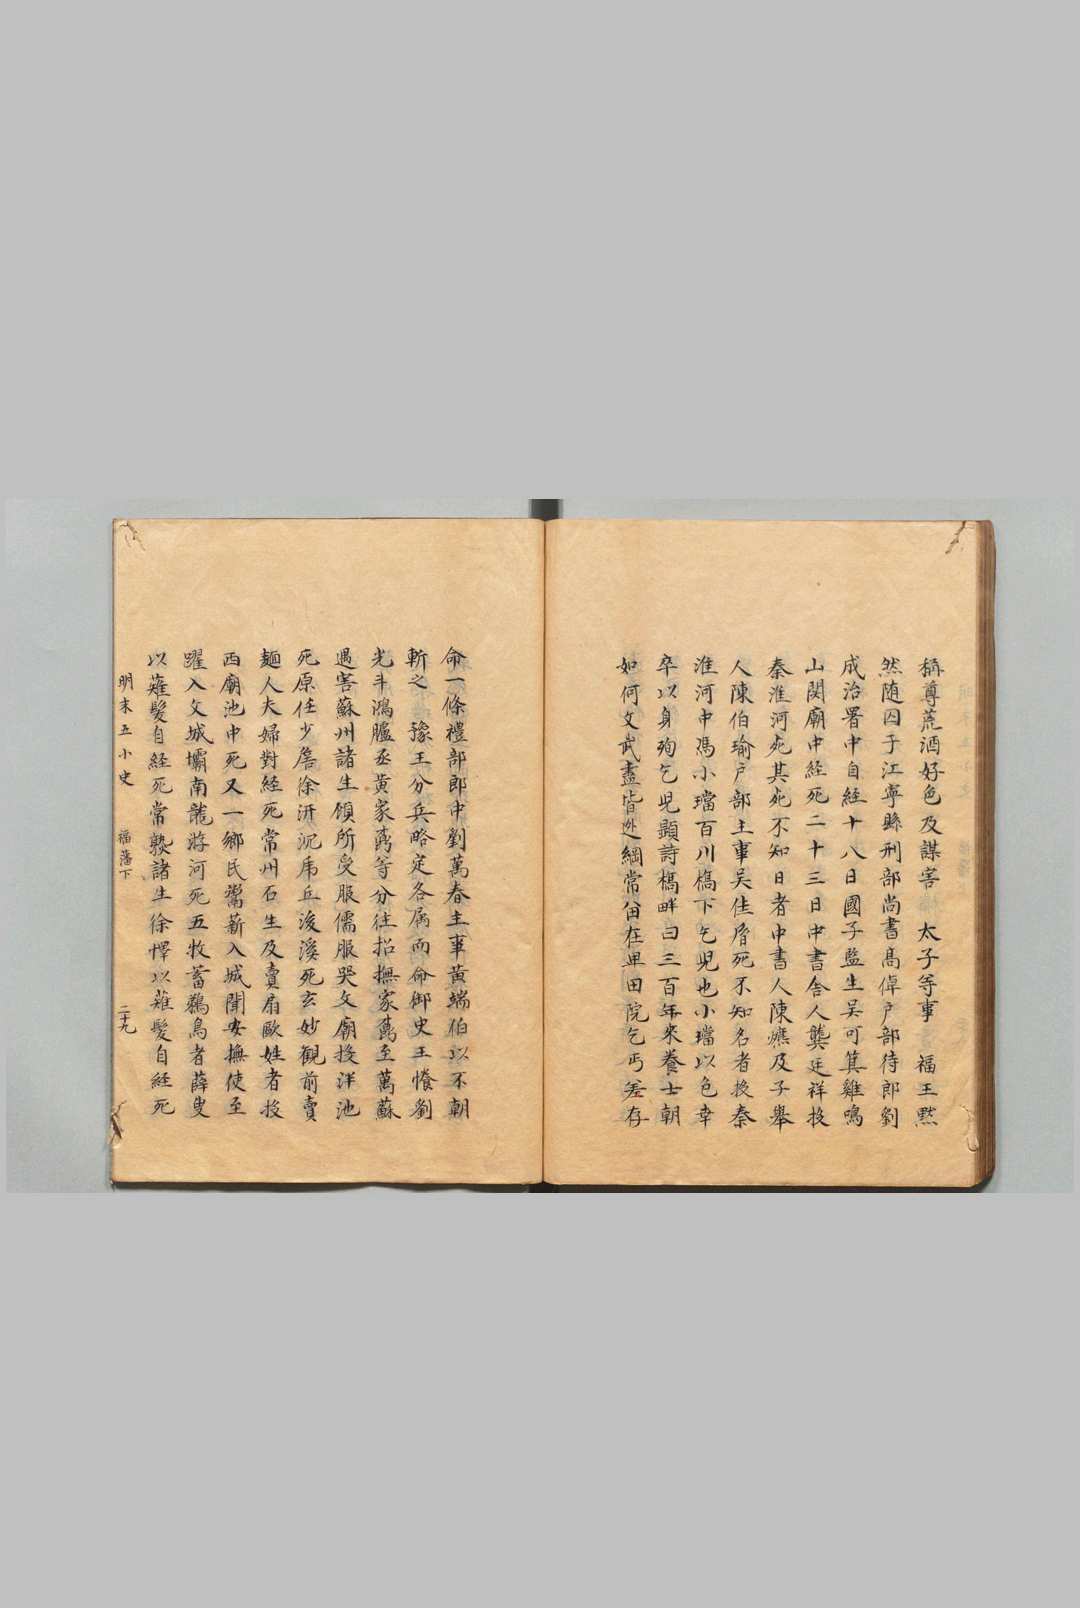 稱尊荒酒好色及謀害 太子等事 福王黙
然随囚于江寧縣刑部尚書髙倬户部待郎劉
成治署中自經十八日國子監生吳可箕雞鳴
山関廟中経死二十三日中書舍人龔廷祥投
秦淮河死其死不知日者中書人陳爊及子舉
人陳伯瑜户部主事吴佳胤死不知名者投秦
淮河中馮小璫百川橋下乞児也小璫以色幸
卒以身殉乞児題詩橋畔曰三百年來養士朝
如何文武盡皆逃綱常留在卑田院乞丐羞存
命一條禮部郎中劉萬春主事黄端伯以不朝
斬之 豫王分兵略定各属而命御史王懩劉
光斗鴻臚丞黄家鼒等分往招撫家鼒至蘇
遇害蘇州諸生顧所受服儒服哭文廟投泮池
死原任少詹徐汧沉虎丘後溪死玄妙観前賣
麺人夫婦對経死常州石生及賣扇歐姓者投
西廟池中死又一鄉民鬻薪入城聞安撫使至
躍入文城壩南龍游河死五牧蓄鵜鳥者薛叟
以薙髮自経死常熟諸生徐懌以薙髮自経死
明末五小史 福藩下 二十九